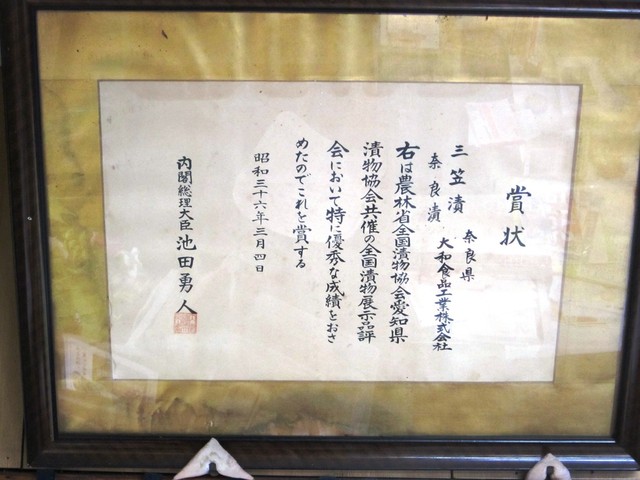 賞状
三笠漬
奈良漬
奈良県
大和食品工業株式会社
右は農林省全国漬物協会愛知県
漬物協会共催の全国漬物展示品評
会において特に優秀な成績をおさ
めたのでこれを賞する
昭和三十六年三月四日
内閣総理大臣 池田勇人